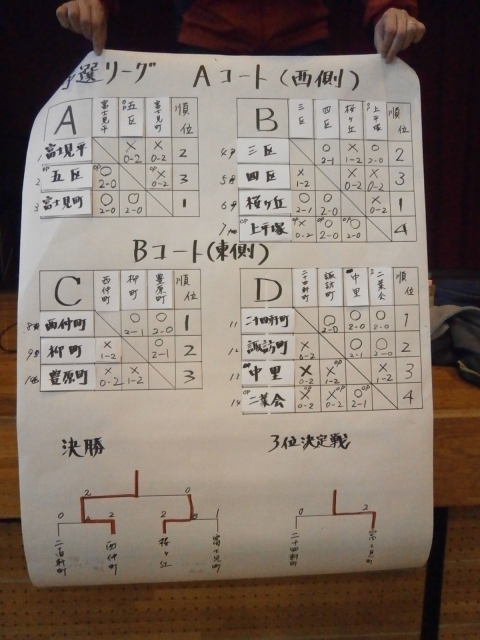 選リーグ Aコート(西側)
A 富士見平 五区 富士見町 順位
1 富士見平 × 0-2 × 0-2 2
2 五区 ○ 2-0 × 0-2 3
3 富士見町 ○ 2-0 ○ 2-0 1
B 三区 四区 桜ヶ丘 上平塚 順位
三区 ○ 2-1 × 1-2 ○ 2-0 2
四区 × 1-2 × 0-2 × 0-2 3
桜ヶ丘 ○ 2-1 ○ 2-0 × 0-2 1
上平塚 × 0-2 ○ 2-0 ○ 2-0 4
Bコート(東側)
C 西仲町 柳町 豊原町 順位
西仲町 ○ 2-1 ○ 2-0 1
柳町 × 1-2 ○ 2-1 2
豊原町 × 0-2 × 1-2 3
D 二十四軒町 諏訪町 中里 二葉会 順位
11 二十四軒町 ○ 2-0 ○ 2-0 ○ 2-0 1
12 諏訪町 × 0-2 ○ 2-1 ○ 2-0 2
13 中里 × 0-2 × 1-2 × 1-2 3
14 二葉会 × 0-2 × 0-2 ○ 2-1 4
決勝 3位決定戦
2 0
0 2 2 0 2
西仲町 桜ヶ丘